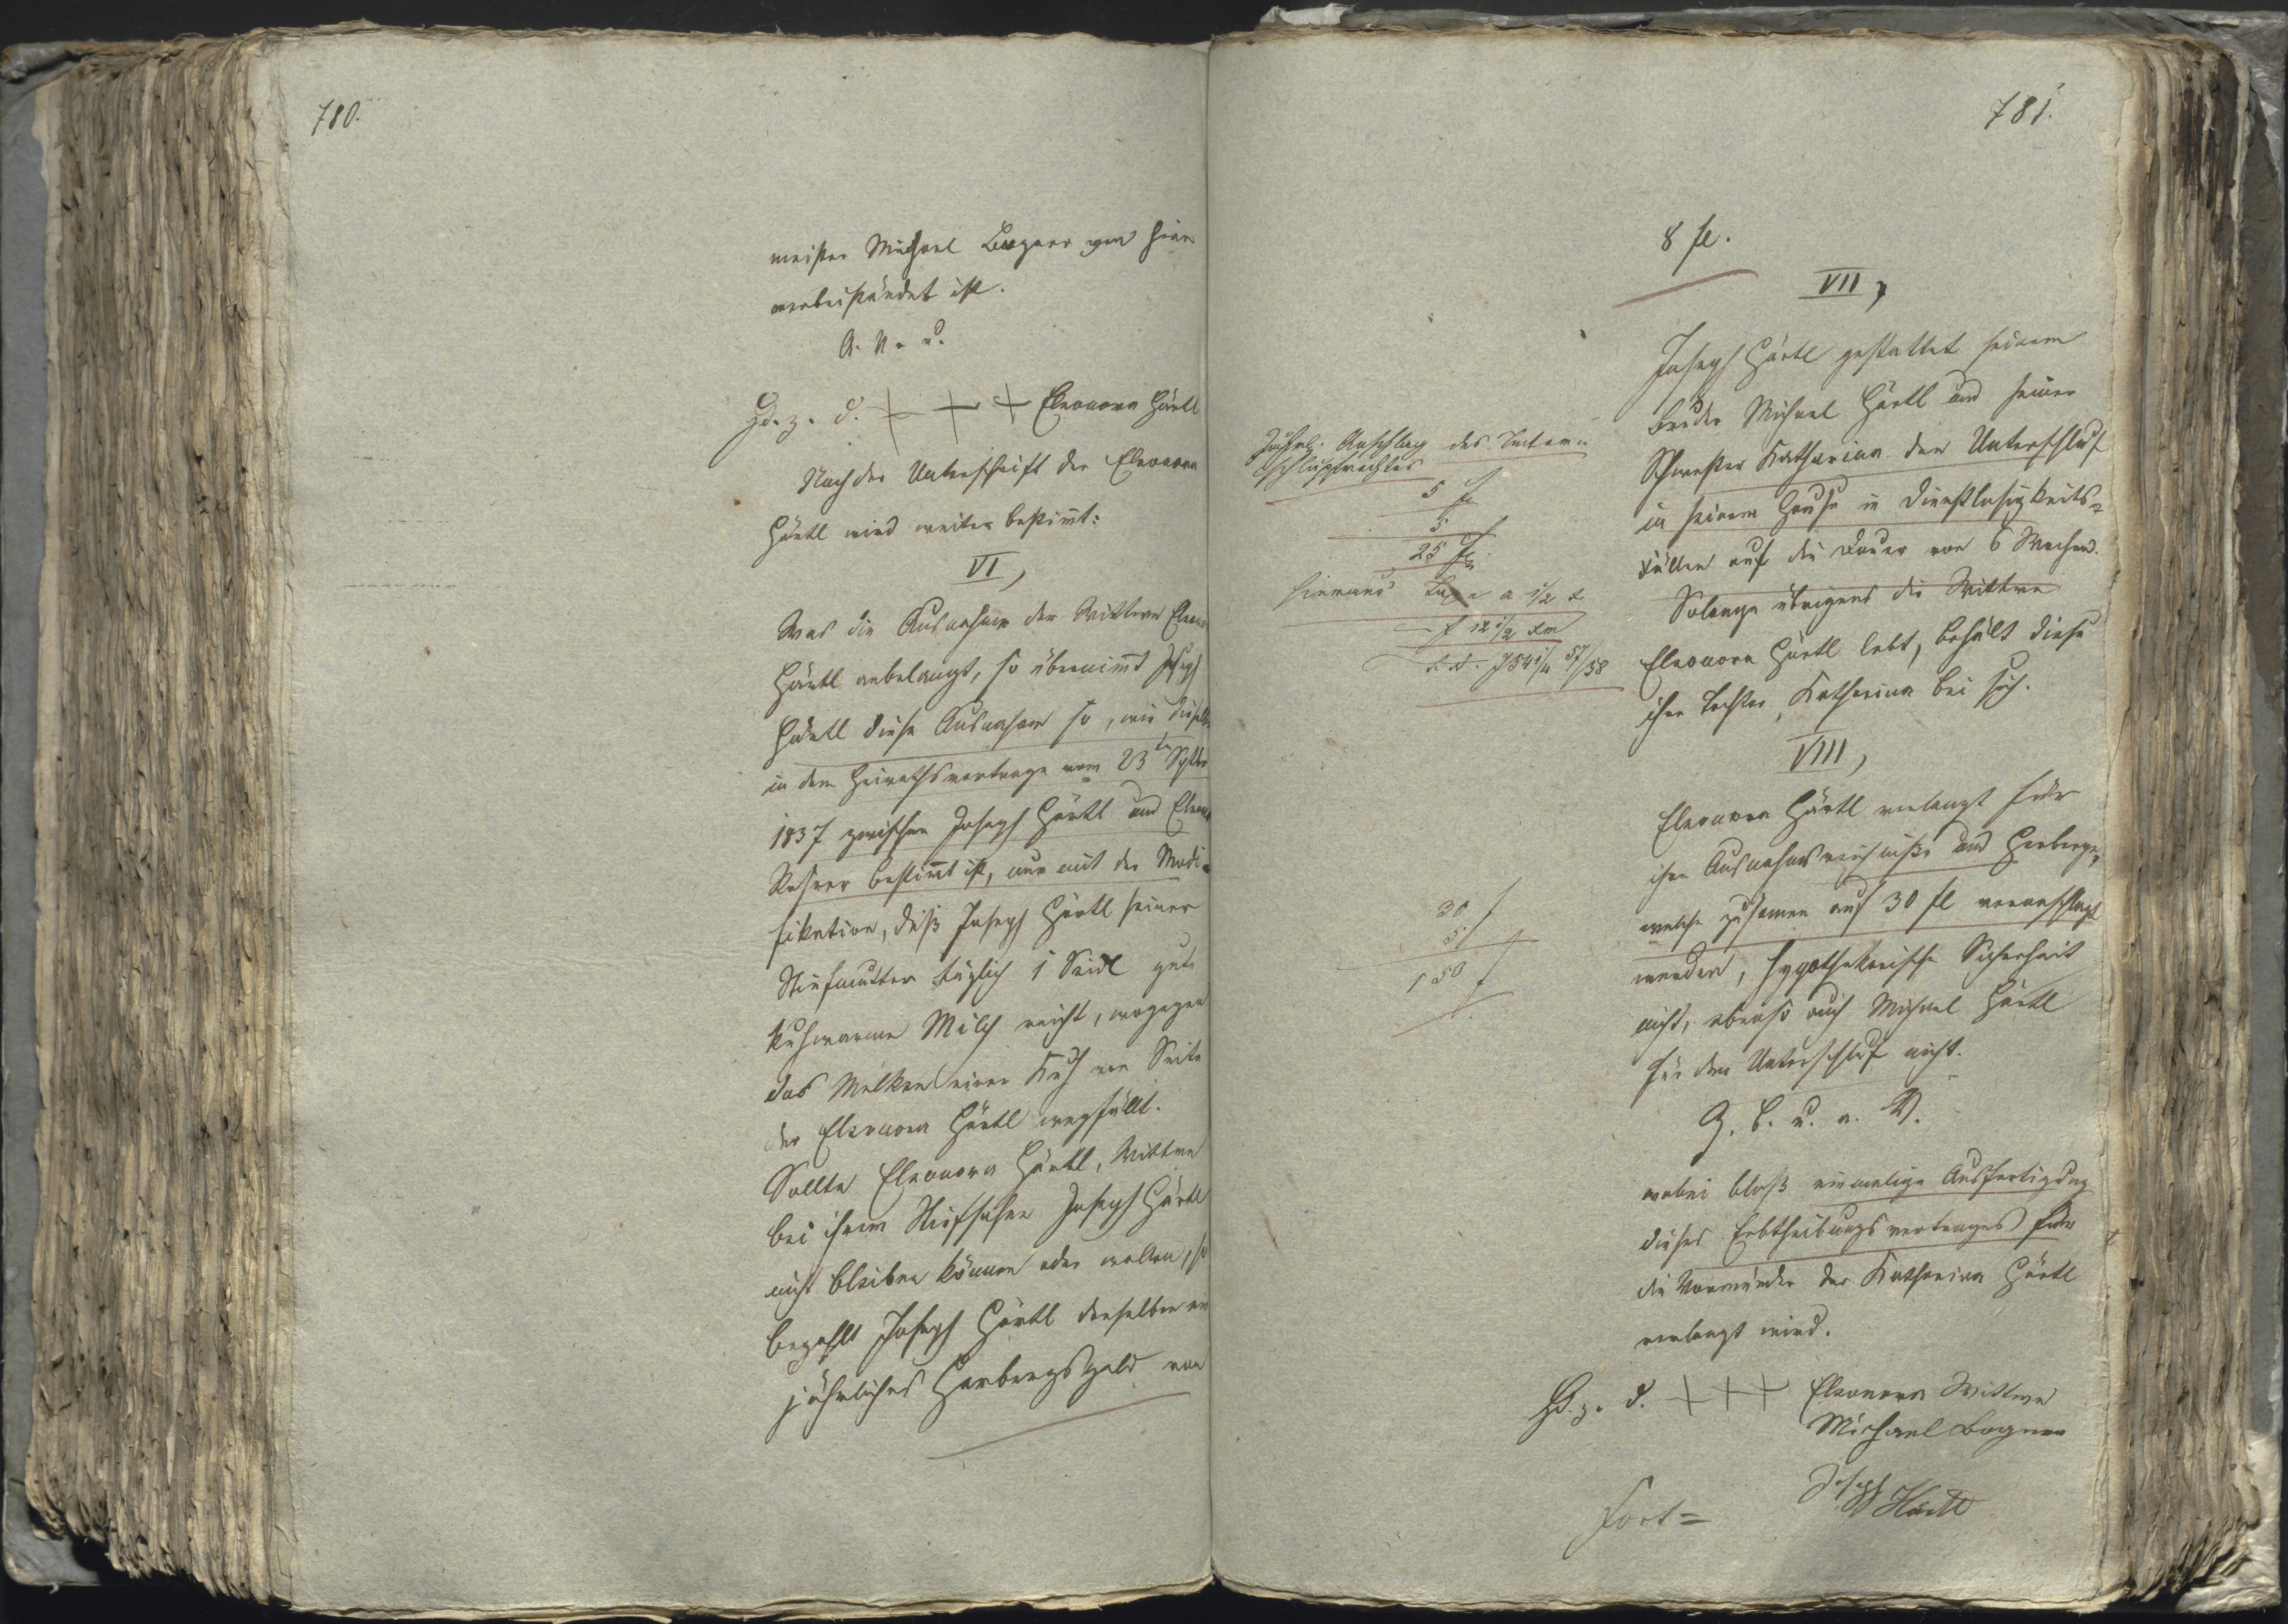 780.
meister Michael Bogner von hier
verbeiständet ist.
A. V. u.
Hd. z. d. + + + Eleonora Härtl
Nach der Unterschrift der Eleonora
Härtl wird weiter bestimt:
VI,
Was die Ausnahme der Wittwe Eleonora
Härtl anbelangt, so übernimt Joseph
Härtl diese Ausnahme so, wie dieselbe
in dem Heirathsvertrage vom 23ten Septbr
1837 zwischen Joseph Härtl und Eleonora
bestimt ist, nur mit der Modi-
fikation, daß Joseph Härtl seiner
Stiefmutter täglich 1 Seidl gute
kuhwarme Milch reicht, wogegen
das Melken einer Kuh von Seite
der Eleonora Härtl wegfällt.
Sollte Eleonora Härtl, Wittwe
bei ihrem Stiefsohne Joseph Härtl
nicht bleiben können oder wollen, so
bezahlt Joseph Härtl derselben ein
jährliches Herbergsgeld von
781.
8 fl.
VII,
Joseph Härtl gestattet seinem
Bruder Michael Härtl und seiner
Schwester Katharina den Unterschluf
in seinem Hause in Dienstlosigkeits-
fällen auf die Dauer von 6 Wochen.
Solange übrigens die Wittwe
Eleonora Härtl lebt, behält diese
ihre Tochter Katharina bei sich.
VIII,
Eleonora Härtl verlangt für
ihre Ausnahmsreichniße und Herberge,
welche zusamen auf 30 fl veranschlagt
werden, hypothekarische Sicherheit
nicht, ebenso auch Michael Härtl
für den Unterschluf nicht.
G. b. u. a. V.
wobei bloß einmalige Ausfertigung
dieses Erbtheilungsvertrages für
die Vormünder der Katharina Härtl
verlangt wird.
Hd. z. d. + + + Eleonora Wittwe
Michael Bogner
Joseph Härtl
Fort=
Jährl. Anschlag des Unter-
schlupfrechtes
5 fl
5
25 fl.
hieraus Taxe a 1/2
f 12 1/2
754 1/4 57/58
30 f
5
150 f